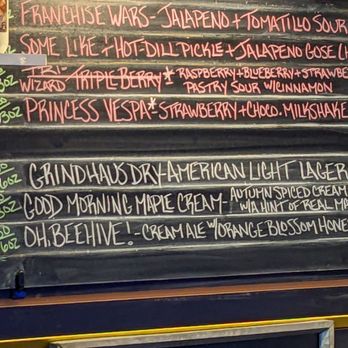 FRANCHISE WARS - JALAPENO + TOMATILLO SOUR
SOME LIKE + HOT-DILL PICKLE + JALAPENO GOSE
TRI-
WIZARD TRIPLE BERRY* RASPBERRY + BLUEBERRY + STRAWBE
PASTRY SOUR W/CINNAMON
PRINCESS VESPA* STRAWBERRY + CHOCO. MILKSHAKE
GRINDHAUS DRY-AMERICAN LIGHT LAGER
AUTUMN SPICED CREAM
GOOD MORNING MAPLE CREAM- W/A HINT OF REAL MA
OH, BEEHIVE! - CREAM ALE W/ORANGE BLOSSOM HONE